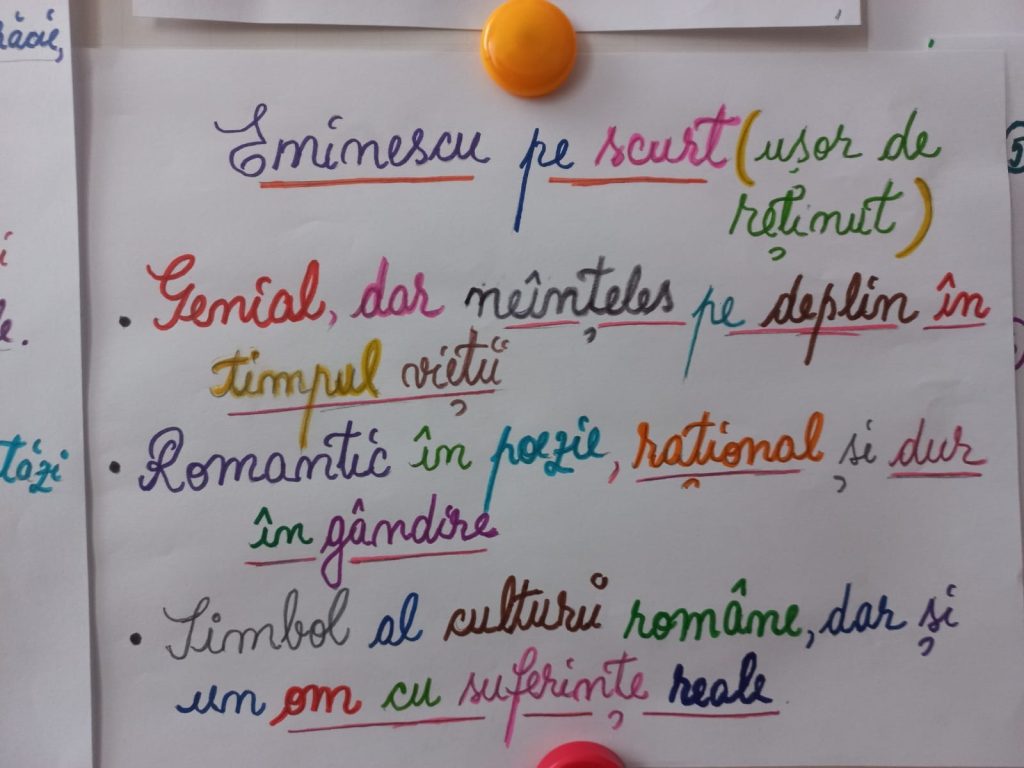 Eminescu pe scurt (ușor de
reținut)
• Genial, dar neînțeles pe deplin în
timpul vieții
• Romantic în poezie, rațional și dur
în gândire
• Simbol al culturii române, dar și
un om cu suferințe reale